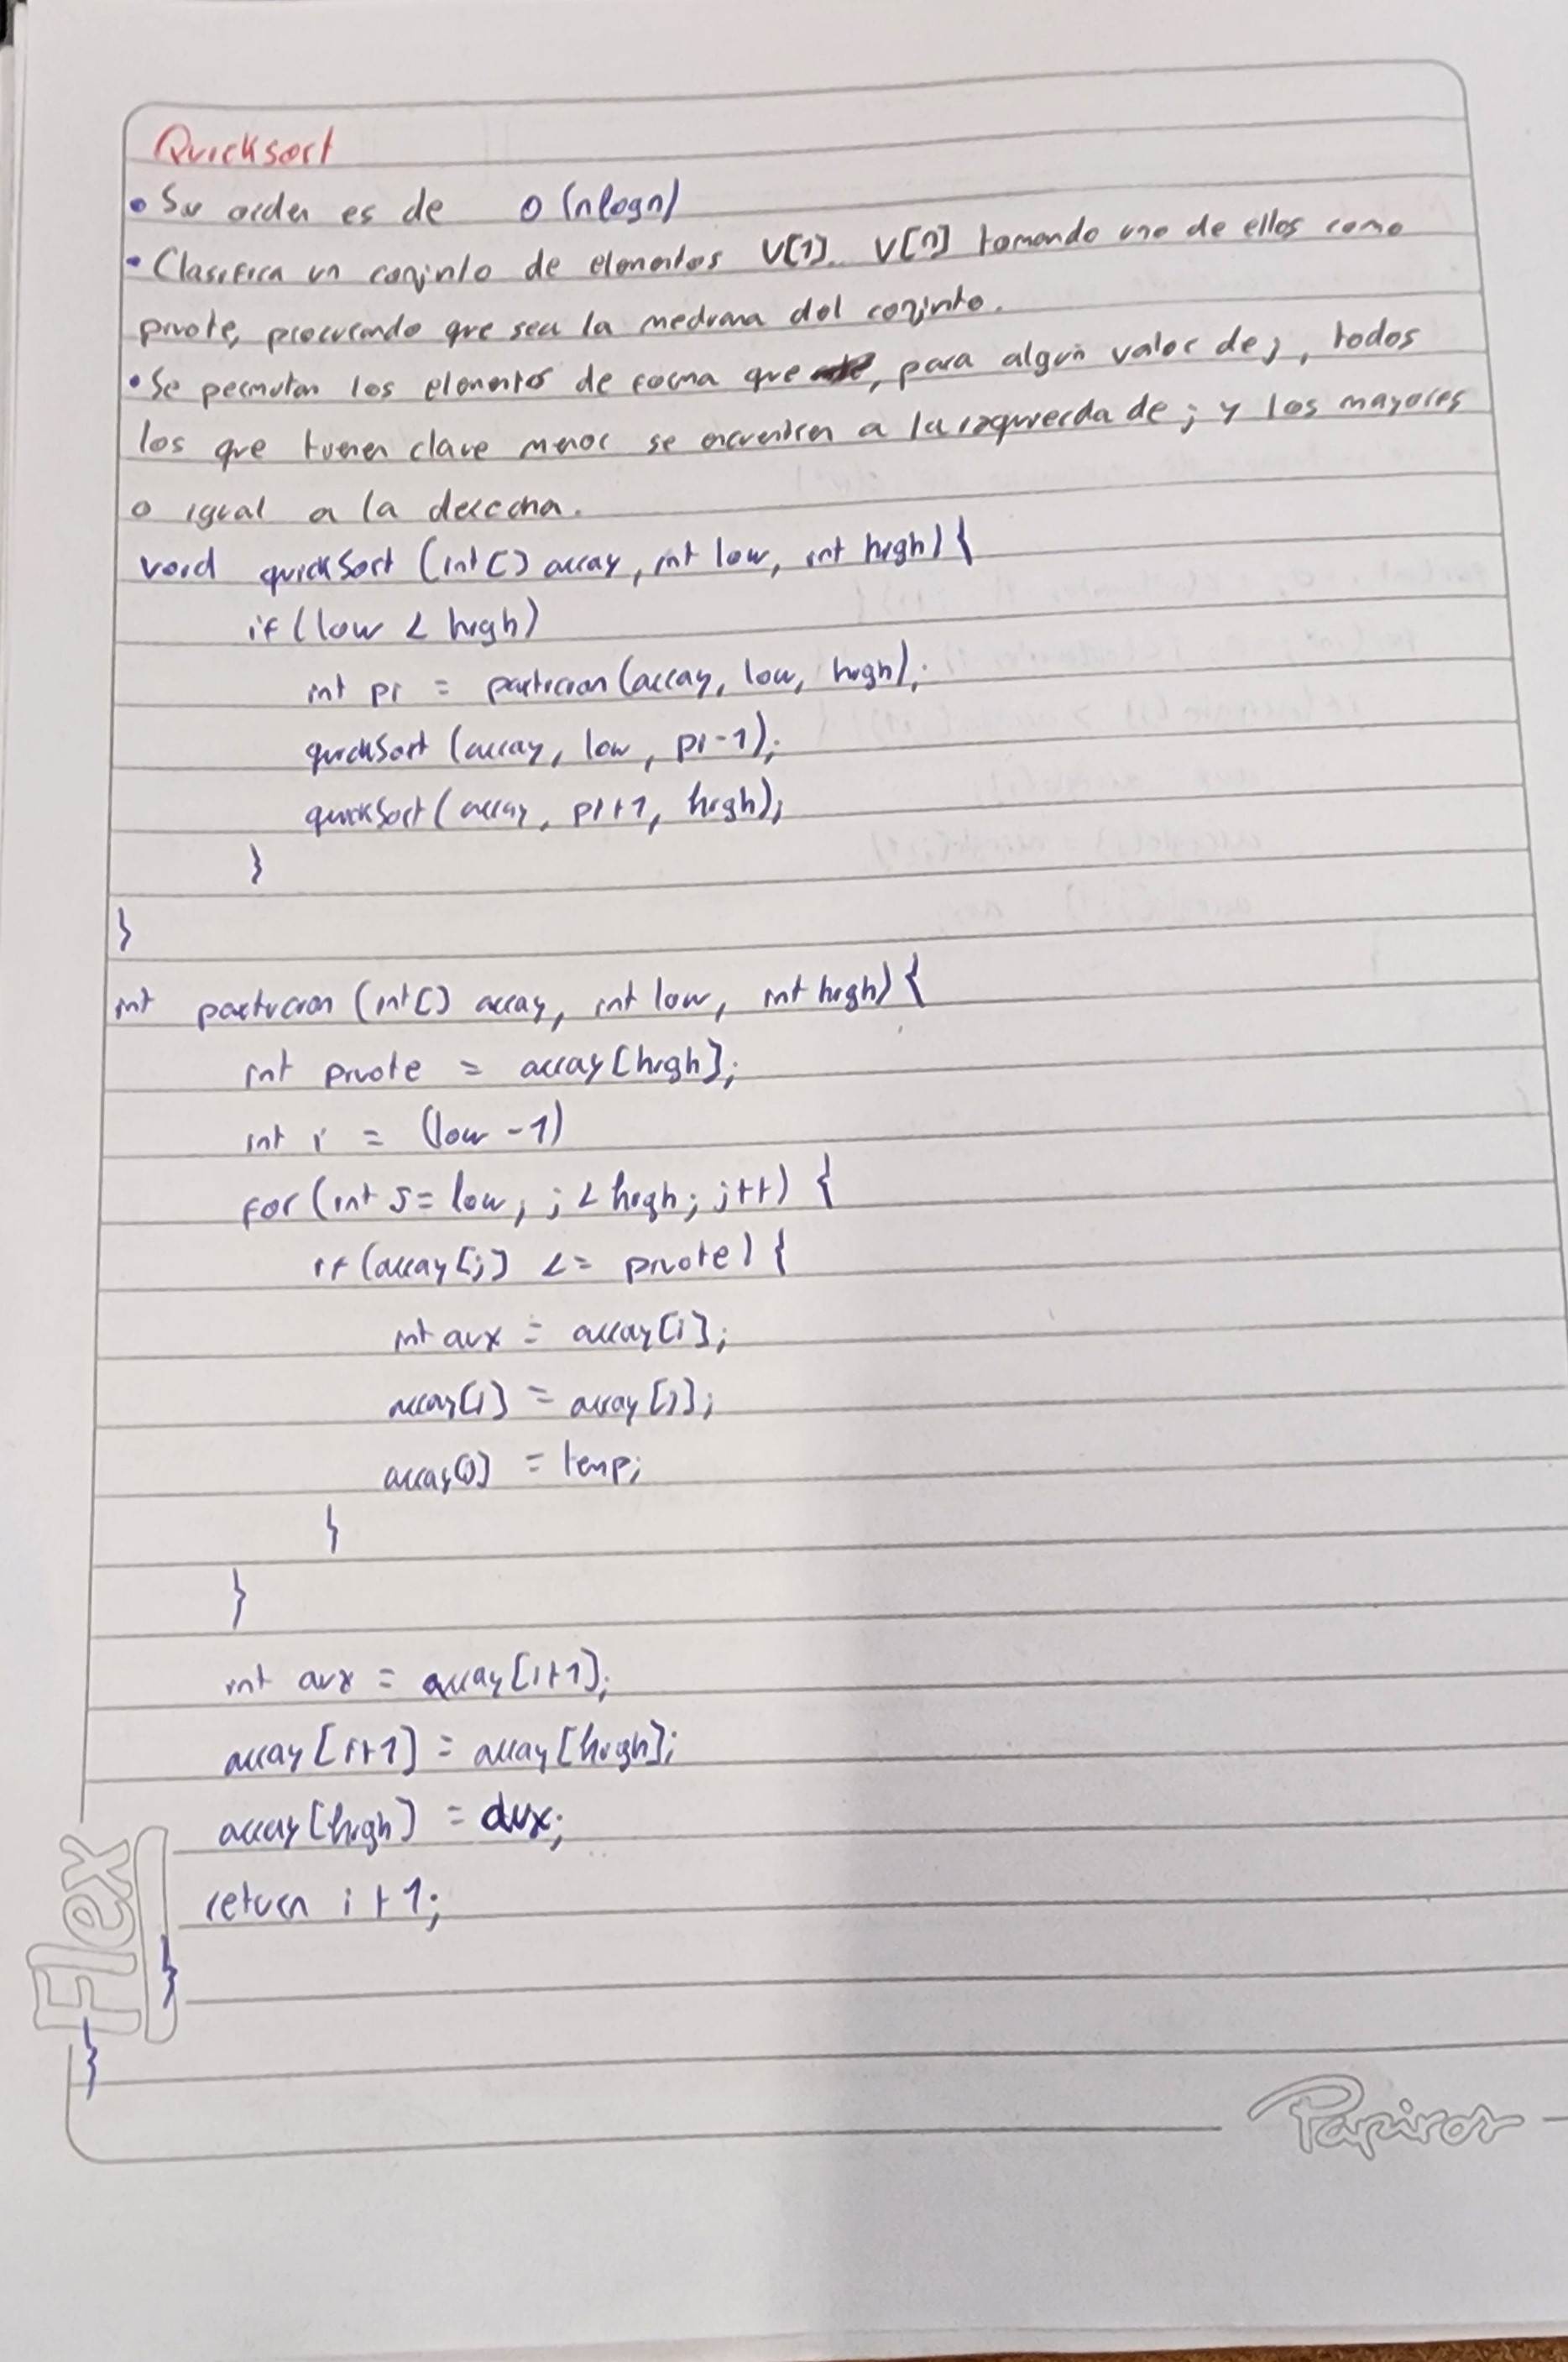 Quicksort
• Su orden es de O(nlogn)
• Clasifica un conjunto de elementos V[1].. V[n] tomando uno de ellos como
pivote, procurando que sea la mediana del conjunto.
• Se permutan los elementos de forma que, para algún valor de j, todos
los que tienen clave menor se encuentren a la izquierda de j y los mayores
o igual a la derecha.
void quickSort (int[] array, int low, int high) {
if (low < high)
int pi = particion (array, low, high);
quickSort (array, low, pi-1);
quickSort (array, pi+1, high);
}
}
int particion (int[] array, int low, int high) {
int pivote = array[high];
int i = (low -1)
for (int j = low; j < high; j++) {
if (array[j] <= pivote) {
int aux = array[i];
array[i] = array[j];
array[j] = temp;
}
}
int aux = array[i+1];
array[i+1] = array[high];
array[high] = aux;
return i + 1;
}
}
Flex
Papiros